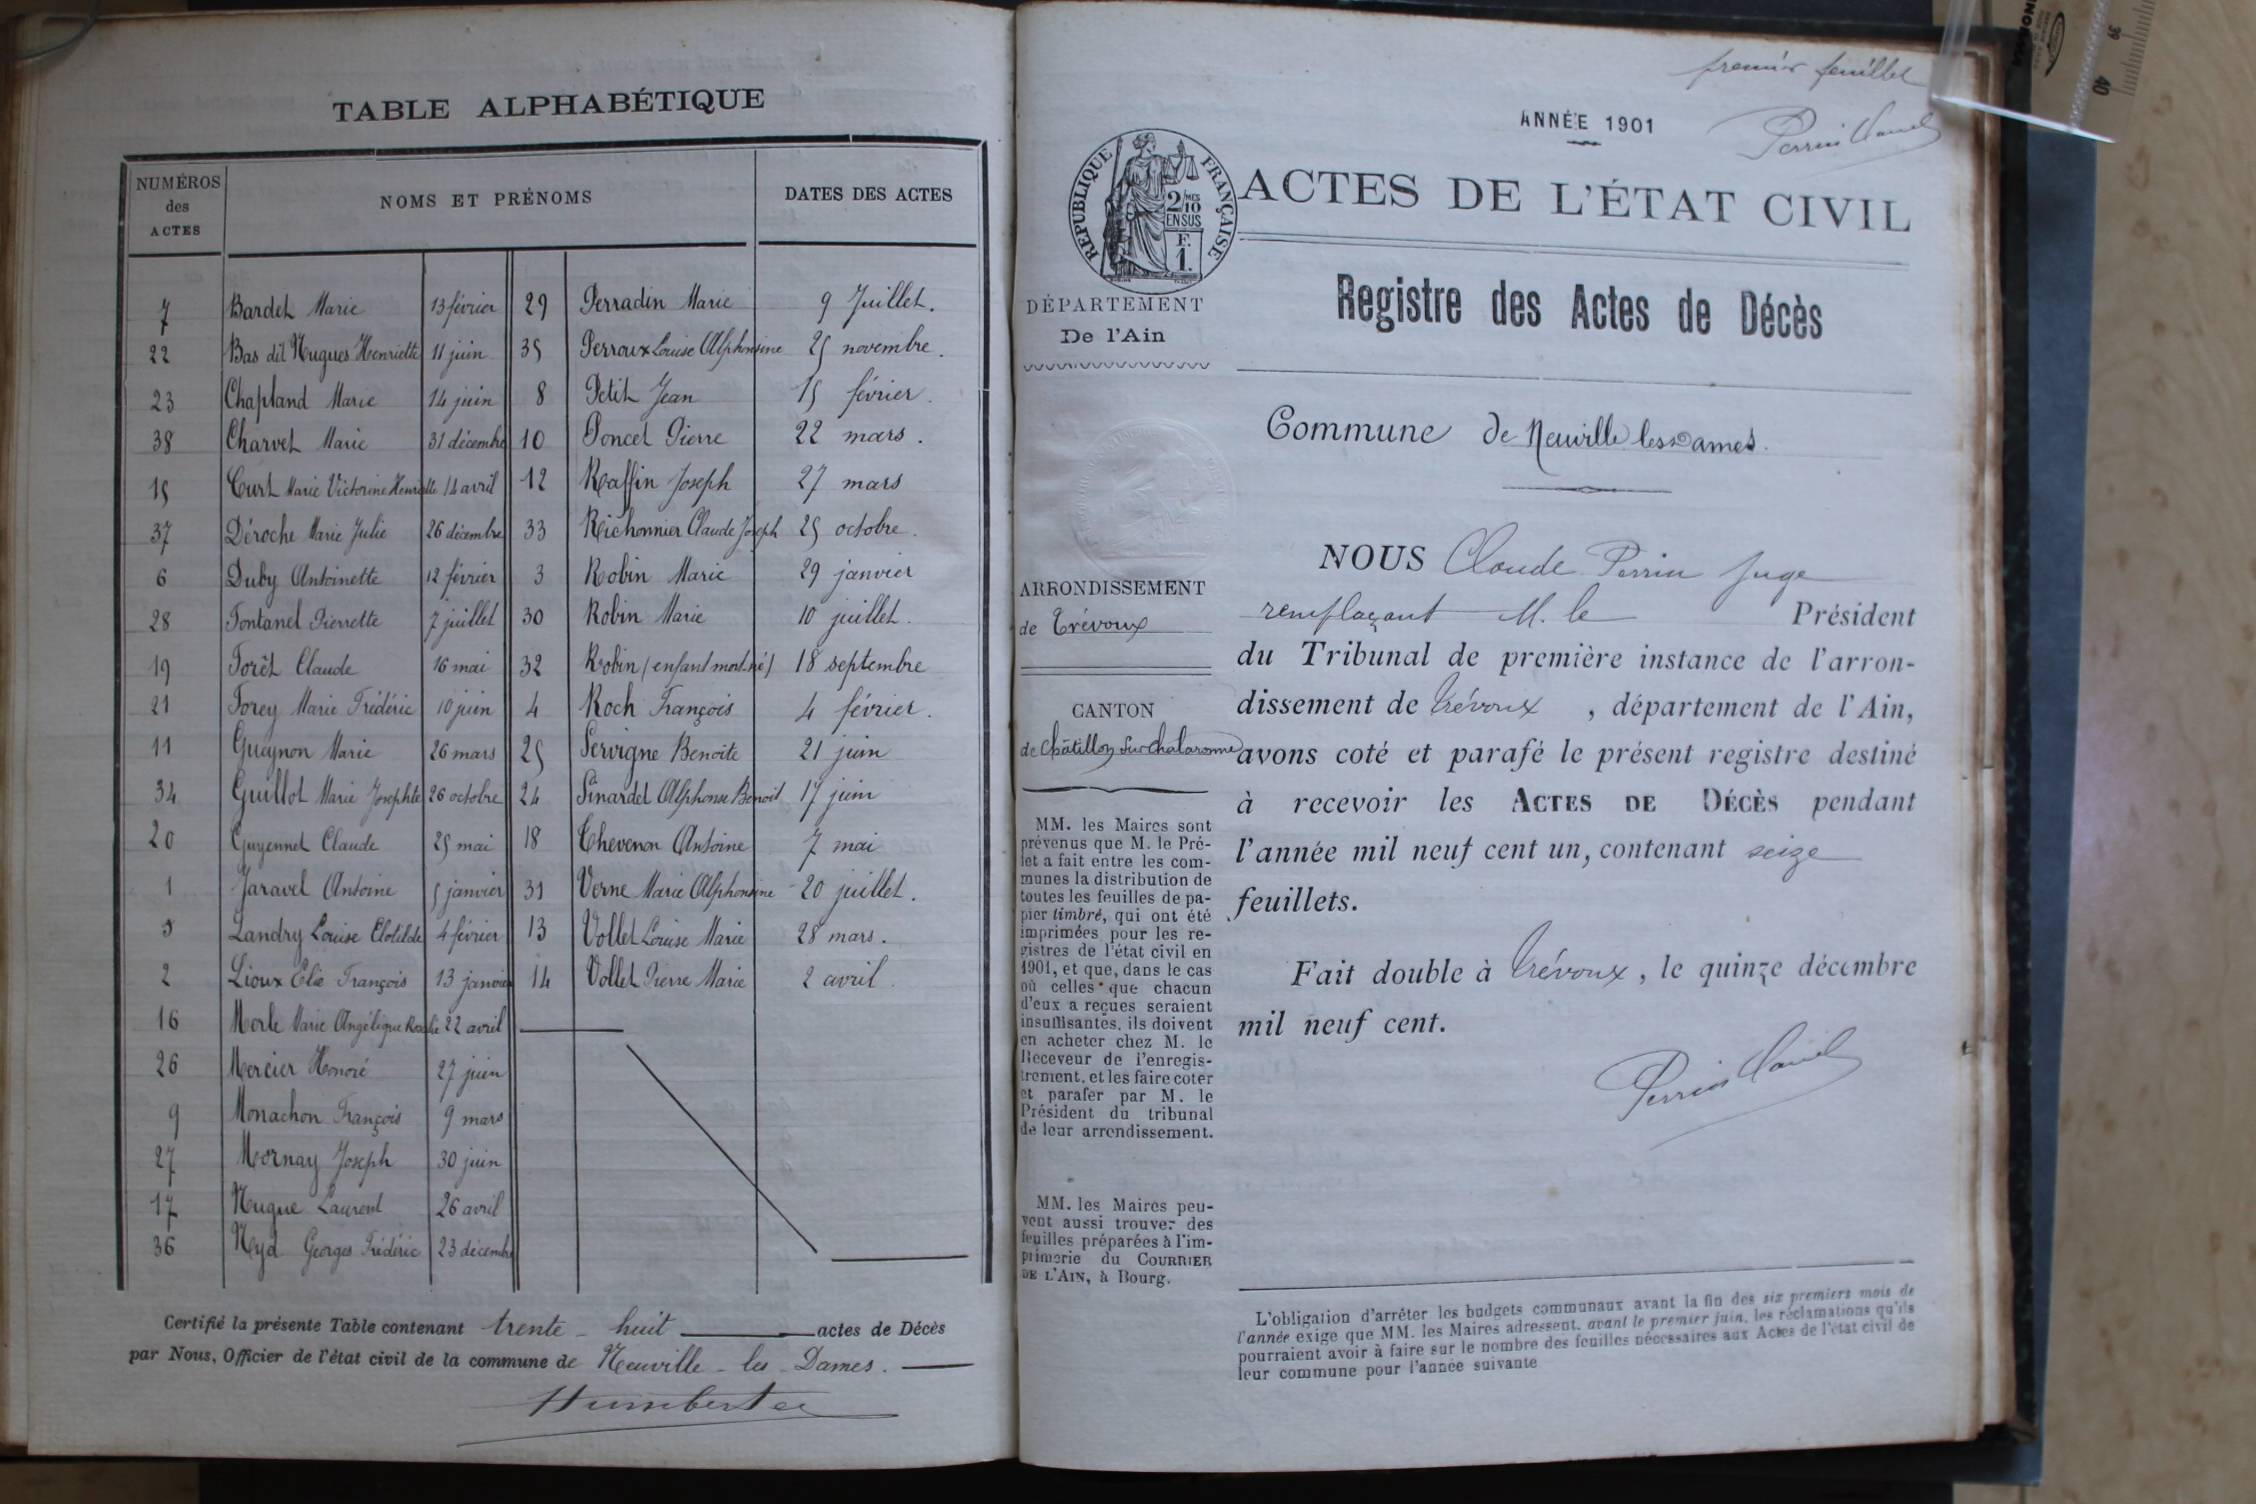 TABLE ALPHABÉTIQUE
NUMÉROS des ACTES NOMS ET PRÉNOMS DATES DES ACTES
7 Bardet Marie 13 février 29 Perradin Marie 9 Juillet.
22 Bas dit Nugues Henriette 11 juin 35 Perroux Louise Alphonsine 25 novembre.
23 Chapland Marie 14 juin 8 Petit Jean 15 février.
38 Charvet Marie 31 décembre 10 Poncet Pierre 22 mars.
15 Curt Marie Victorine Henriette 14 avril 12 Raffin Joseph 27 mars
37 Déroche Marie Julie 26 décembre 33 Richonnier Claude Joseph 25 octobre.
6 Duby Antoinette 12 février 3 Robin Marie 29 janvier
28 Fontanel Pierrette 7 juillet 30 Robin Marie 10 juillet.
19 Forêt Claude 16 mai 32 Robin (enfant mort-né) 18 septembre
21 Forey Marie Frédéric 10 juin 4 Roch François 4 février.
11 Guaynon Marie 26 mars 25 Servigne Benoite 21 juin
34 Guillot Marie Josephte 26 octobre 24 Sinardet Alphonse Benoit 17 juin
20 Guyennet Claude 25 mai 18 Thevenon Antoine 7 mai
1 Jaravel Antoine 5 janvier 31 Verne Marie Alphonsine 20 juillet.
5 Landry Louise Clotilde 4 février 13 Vollet Louise Marie 28 mars.
2 Lioux Elie François 13 janvier 14 Vollet Pierre Marie 2 avril.
16 Morle Marie Angélique Rosalie 22 avril
26 Mercier Honoré 27 juin
9 Monachon François 9 mars
27 Mornay Joseph 30 juin
17 Nugue Laurent 26 avril
36 Nyd Georges Frédéric 23 décembre
Certifié la présente Table contenant trente-huit actes de Décès
par Nous, Officier de l'état civil de la commune de Neuville-les-Dames.
premier feuillet
ANNÉE 1901
RÉPUBLIQUE FRANÇAISE
2/10 MES
EN SUS
F.
1.
ACTES DE L'ÉTAT CIVIL
DÉPARTEMENT
De l'Ain
Registre des Actes de Décès
Commune de Neuville les Dames.
ARRONDISSEMENT
de Trévoux
CANTON
de Châtillon sur Chalaronne
MM. les Maires sont
prévenus que M. le Pré-
fet a fait entre les com-
munes la distribution de
toutes les feuilles de pa-
pier timbré, qui ont été
imprimées pour les re-
gistres de l'état civil en
1901, et que, dans le cas
où celles que chacun
d'eux a reçues seraient
insuffisantes, ils doivent
en acheter chez M. le
Receveur de l'enregis-
trement, et les faire coter
et parafer par M. le
Président du tribunal
de leur arrondissement.
MM. les Maires peu-
vent aussi trouver des
feuilles préparées à l'im-
primerie du COURRIER
DE L'AIN, à Bourg.
NOUS Claude Perrin Juge
remplaçant M. le Président
du Tribunal de première instance de l'arron-
dissement de Trévoux, département de l'Ain,
avons coté et parafé le présent registre destiné
à recevoir les ACTES DE DÉCÈS pendant
l'année mil neuf cent un, contenant seize
feuillets.
Fait double à Trévoux, le quinze décembre
mil neuf cent.
L'obligation d'arrêter les budgets communaux avant la fin des six premiers mois de
l'année exige que MM. les Maires adressent, avant le premier juin, les réclamations qu'ils
pourraient avoir à faire sur le nombre des feuilles nécessaires aux Actes de l'état civil de
leur commune pour l'année suivante